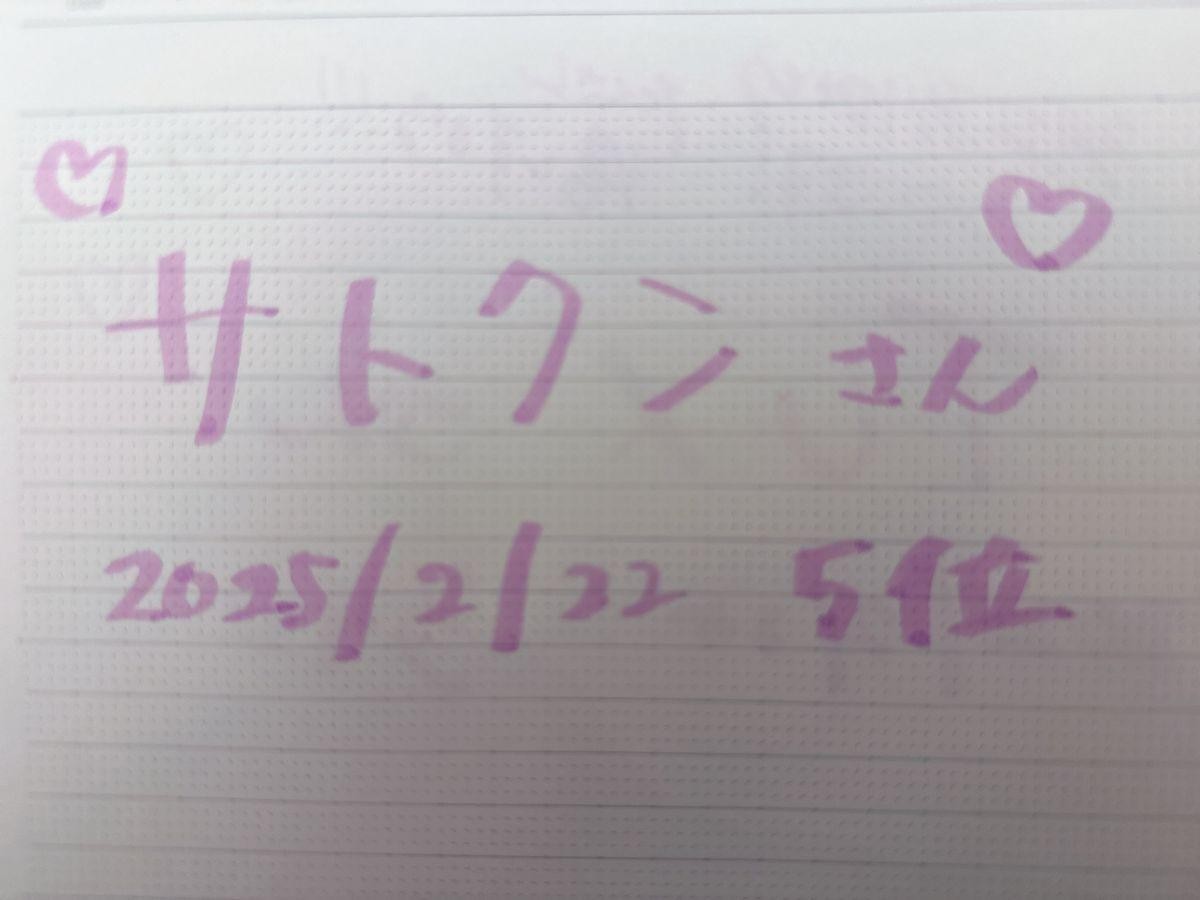 サトクン さん
2025/2/22 5位